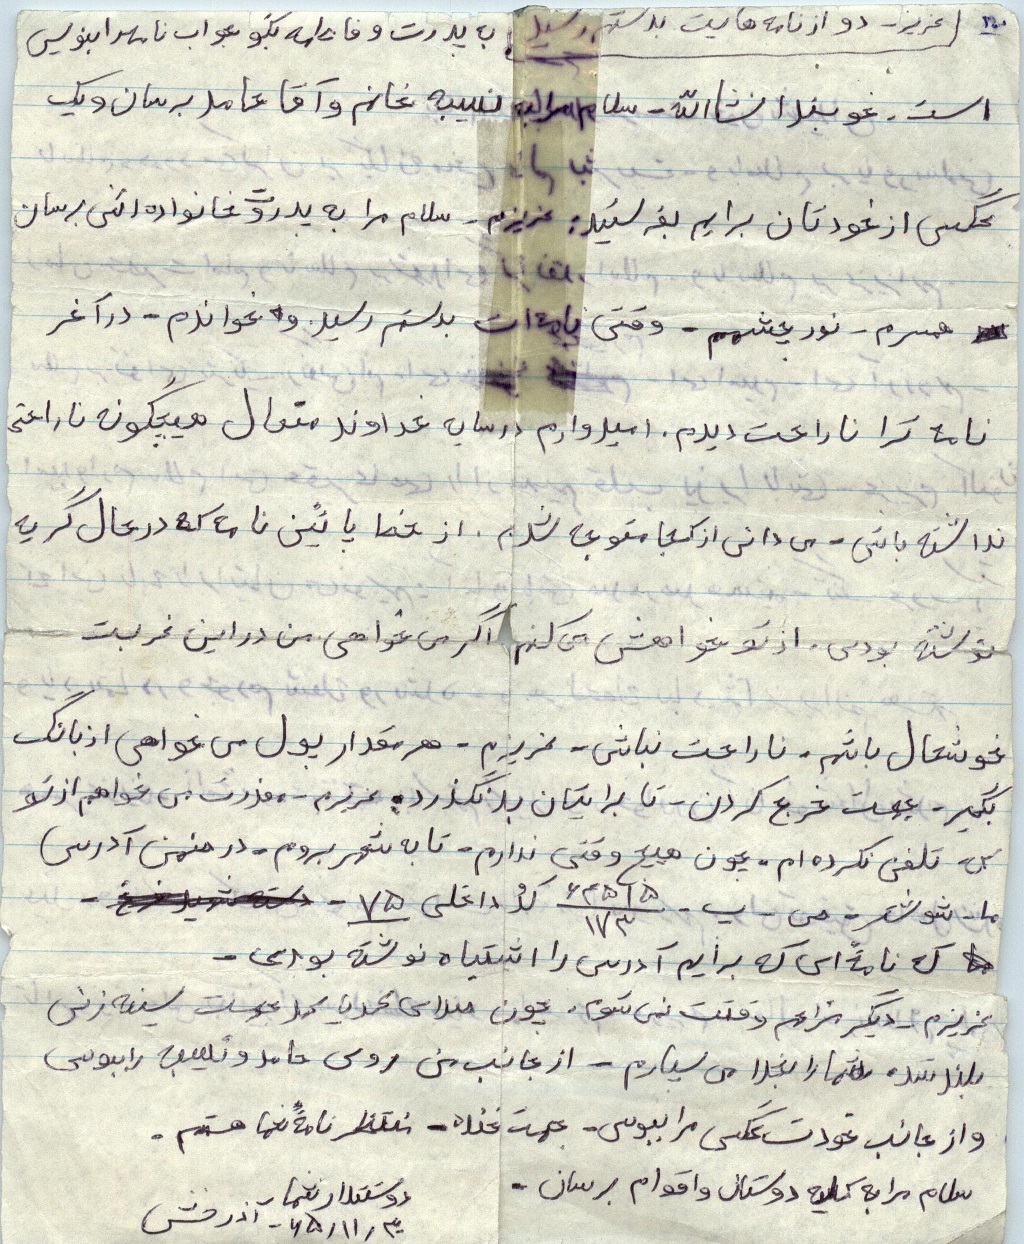 عزیز - دو از نامه هایت بدستم رسید. به پدرت و فاطمه بگو جواب نامه را بنویس
است. خوبند انشاالله - سلام مرا به نسیبه خانم و آقا حامد برسان و یک
عکسی از خودتان برایم بفرستید. عزیزم - سلام مرا به پدرت و خانواده اش برسان
همسرم - نور چشمم - وقتی نامه ات بدستم رسید و خواندم - در آخر
نامه ترا ناراحت دیدم. امیدوارم در سایه خداوند متعال هیچگونه ناراحتی
نداشته باشی - می دانی از کجا متوجه شدم. از خط پائین نامه که در حال گریه
نوشته بودی. از تو خواهش می کنم اگر می خواهی من در این غربت
خوشحال باشم. ناراحت نباشی - عزیزم - هر مقدار پول می خواهی از بانک
بگیر - جهت خرج کردن - تا برایتان بد نگذرد. عزیزم - معذرت می خواهم از تو
که تلفن نکرده ام - چون هیچ وقتی ندارم - تا به شهر بروم - در ضمن آدرس
ما - شوشتر - ص - پ - ۱۷۳ کد داخلی ۷۵ -
که نامه ای که برایم آدرس را اشتباه نوشته بودی -
عزیزم - دیگر مزاحم وقتت نمی شوم. چون صدای جهت سینه زنی
بلند شد. شما را بخدا می سپارم - از جانب من روی حامد و نسیبه را ببوسی
و از جانب خودت عکس مرا ببوسی - جهت خنده - منتظر نامهٔ شما هستم.
سلام مرا به کلیه دوستان و اقوام برسان -
دوستدار شما - آذرخش
۶۵/۱۱/۳